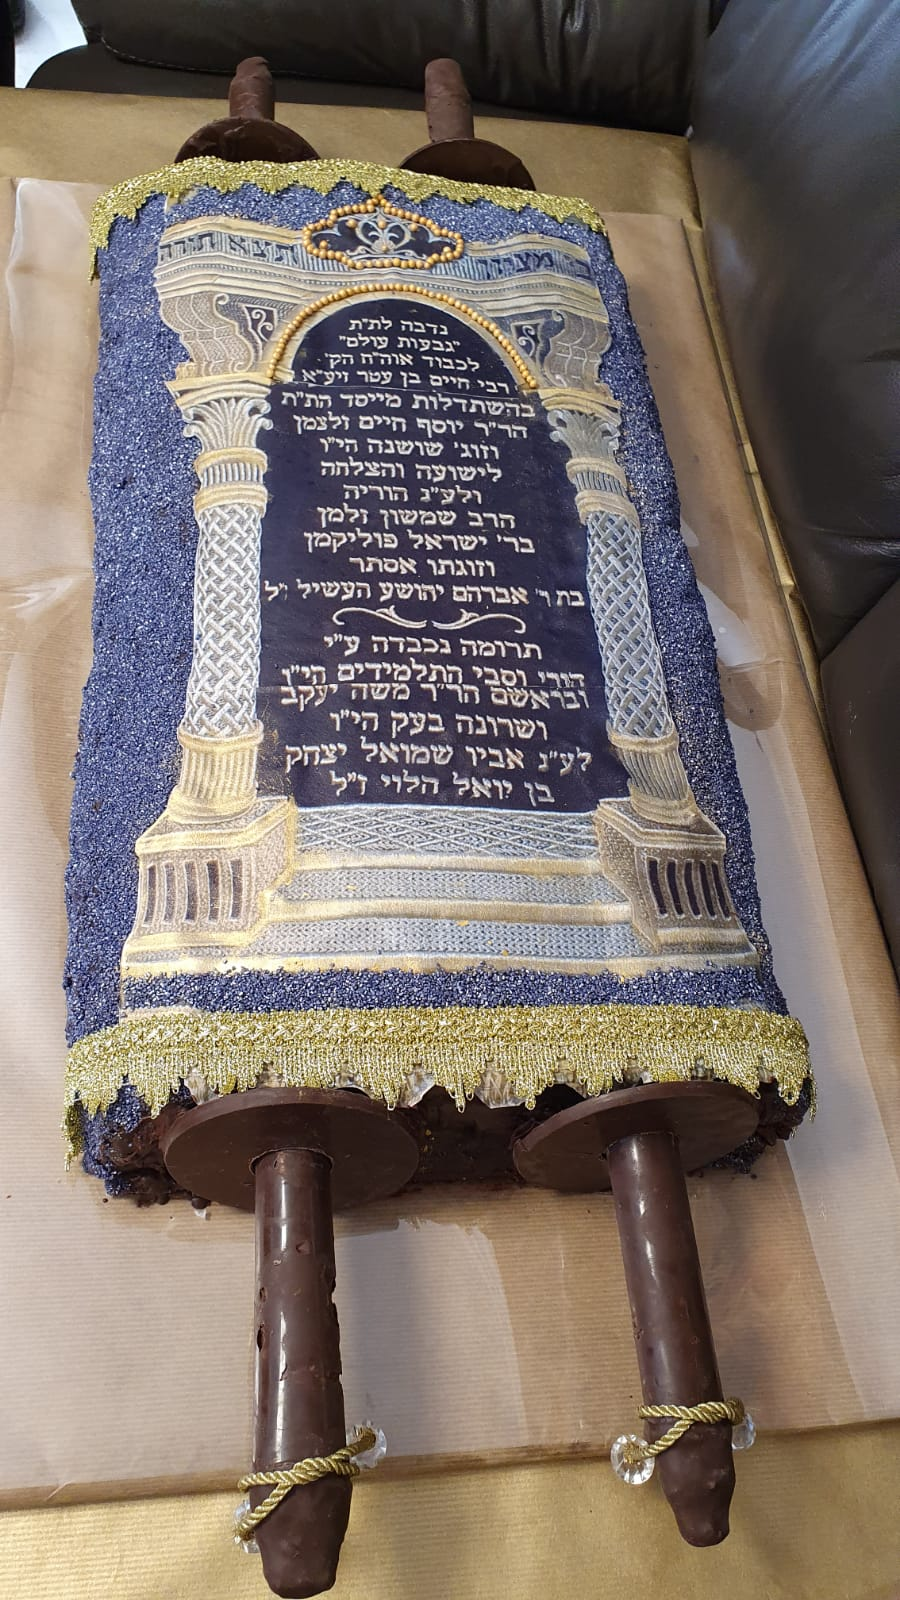 כי מציון תצא תורה
נדבה לת״ת
״גבעות עולם״
לכבוד אוה״ח הק׳
רבי חיים בן עטר זיע״א
בהשתדלות מייסד הת״ת
הר״ר יוסף חיים זלצמן
וזוג׳ שושנה הי״ו
לישועה והצלחה
ולע״נ הוריה
הרב שמשון זלמן
בר׳ ישראל פוליקמן
וזוגתו אסתר
בת ר׳ אברהם יהושע העשיל ז״ל
תרומה נכבדה ע״י
הורי וסבי התלמידים הי״ו
ובראשם הר״ר משה יעקב
ושרונה בעק הי״ו
לע״נ אביו שמואל יצחק
בן יואל הלוי ז״ל